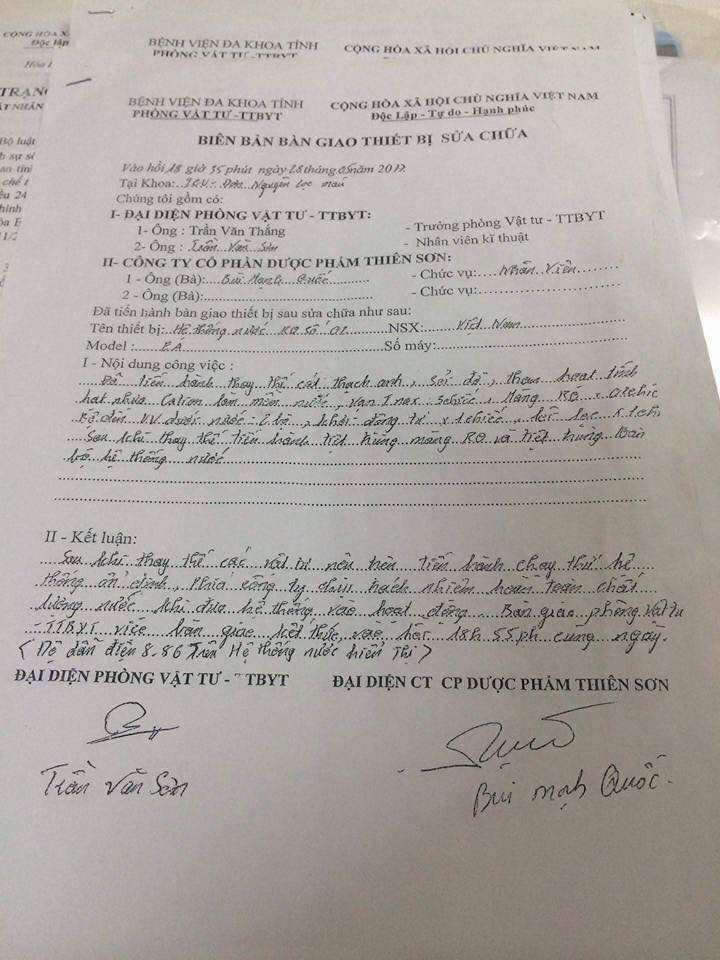 CỘNG HÒA X
Độc lập
Hòa
TRẠNG
ÁT NHÂN
Bộ luật
BỆNH VIỆN ĐA KHOA TỈNH CỘNG HÒA XÃ HỘI CHỦ NGHĨA VIỆT NAM
PHÒNG VẬT TƯ -TTBYT
BỆNH VIỆN ĐA KHOA TỈNH CỘNG HÒA XÃ HỘI CHỦ NGHĨA VIỆT NAM
PHÒNG VẬT TƯ -TTBYT Độc Lập - Tự do - Hạnh phúc
BIÊN BẢN BÀN GIAO THIẾT BỊ SỬA CHỮA
Vào hồi 18 giờ 35 phút ngày 28 tháng 05 năm 2017
Tại Khoa: Nguyên lọc máu
Chúng tôi gồm có:
I- ĐẠI DIỆN PHÒNG VẬT TƯ - TTBYT:
1- Ông : Trần Văn Thắng - Trưởng phòng Vật tư - TTBYT
2- Ông : Trần Văn Sơn - Nhân viên kĩ thuật
II- CÔNG TY CỔ PHẦN DƯỢC PHẨM THIÊN SƠN:
1 - Ông (Bà): Bùi Mạnh Quốc - Chức vụ: Nhân Viên
2 - Ông (Bà) - Chức vụ:
Đã tiến hành bàn giao thiết bị sau sửa chữa như sau:
Tên thiết bị: Hệ thống nước RO số 02 NSX: Việt Nam
Model : Số máy:
I - Nội dung công việc :
Đã tiến hành thay thế cát thạch anh, Sỏi đỡ, than hoạt tính
hạt nhựa Cation làm mềm nước, Van Inox Màng RO x
Bộ đèn U.V dưới nước: 2 bộ, khởi động từ x 1 chiếc, lọc x
Sau khi thay thế tiến hành tiệt trùng màng RO và tiệt trùng toàn
bộ hệ thống nước
II - Kết luận:
Sau khi thay thế các vật tư nêu trên tiến hành chạy thử hệ
thống ổn định, Phía công ty chịu trách nhiệm hoàn toàn chất
lượng nước khi đưa hệ thống vào hoạt động. Bàn giao phòng Vật tư
-TTBYT việc bàn giao kết thúc vào lúc 18h 55ph cùng ngày.
< Độ dẫn điện 8.86 trên Hệ thống nước hiển thị >
ĐẠI DIỆN PHÒNG VẬT TƯ - TTBYT ĐẠI DIỆN CT CP DƯỢC PHẨM THIÊN SƠN
Trần Văn Sơn Bùi Mạnh Quốc